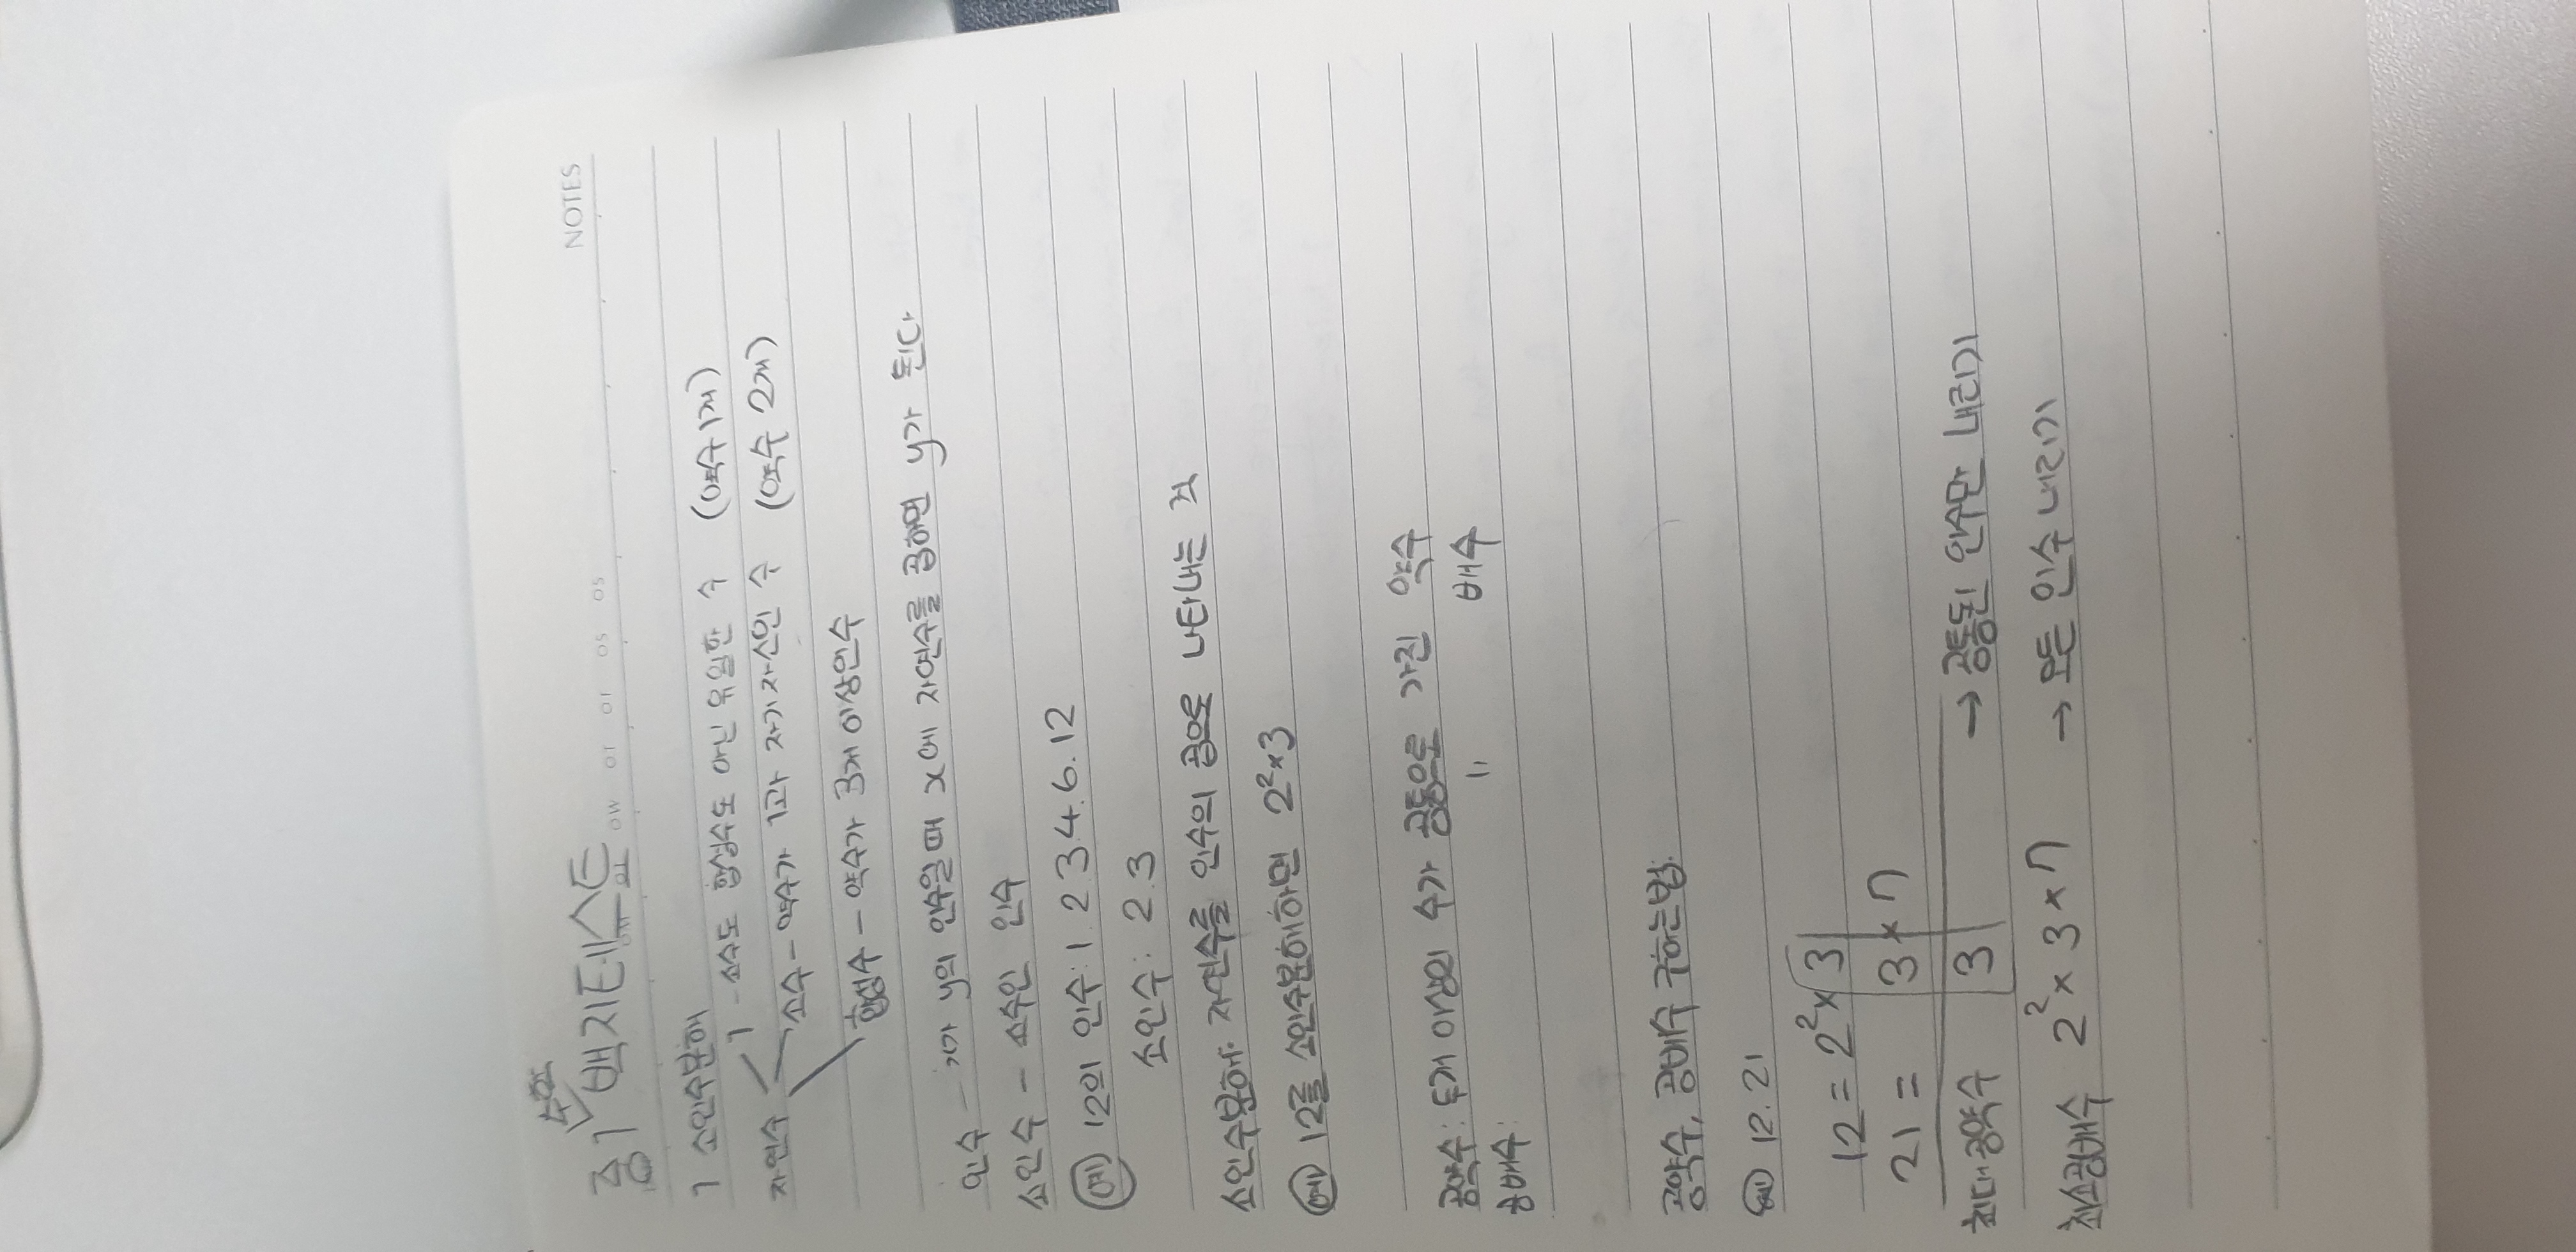 NOTES
수학
중1 백지테스트
1 소인수분해
자연수 1 - 소수도 합성수도 아닌 유일한 수 (약수 1개)
소수 - 약수가 1과 자기자신인 수 (약수 2개)
합성수 - 약수가 3개 이상인수
인수 - x가 y의 인수일때 x에 자연수를 곱하면 y가 된다
소인수 - 소수인 인수
예) 12의 인수: 1. 2. 3. 4. 6. 12
소인수: 2. 3
소인수분해: 자연수를 인수의 곱으로 나타내는 것
예) 12를 소인수분해하면 2²×3
공약수: 두개 이상의 수가 공통으로 가진 약수
공배수: 〃 배수
공약수, 공배수 구하는법.
예) 12. 21
12 = 2² × 3
21 = 3 × 7
최대공약수 3 → 공통된 인수만 내리기
최소공배수 2² × 3 × 7 → 모든 인수 내리기